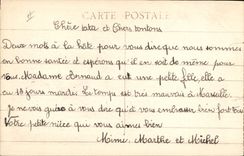 CARTE POSTALE
Chère tata et Chers tontons
Deux mots à la hâte pour vous dire que nous sommes
en bonne santée et espérons qu'il en soit de même pour
vous. Madame Arnaud a eut une petite fille, elle a
eu 10 jours mardi. Le temps est très mauvais à Marseille.
Je ne vois guère à vous dire qu'à vous embrasser bien fort
Votre petite nièce qui vous aimes bien
Mimi. Marthe et Michel